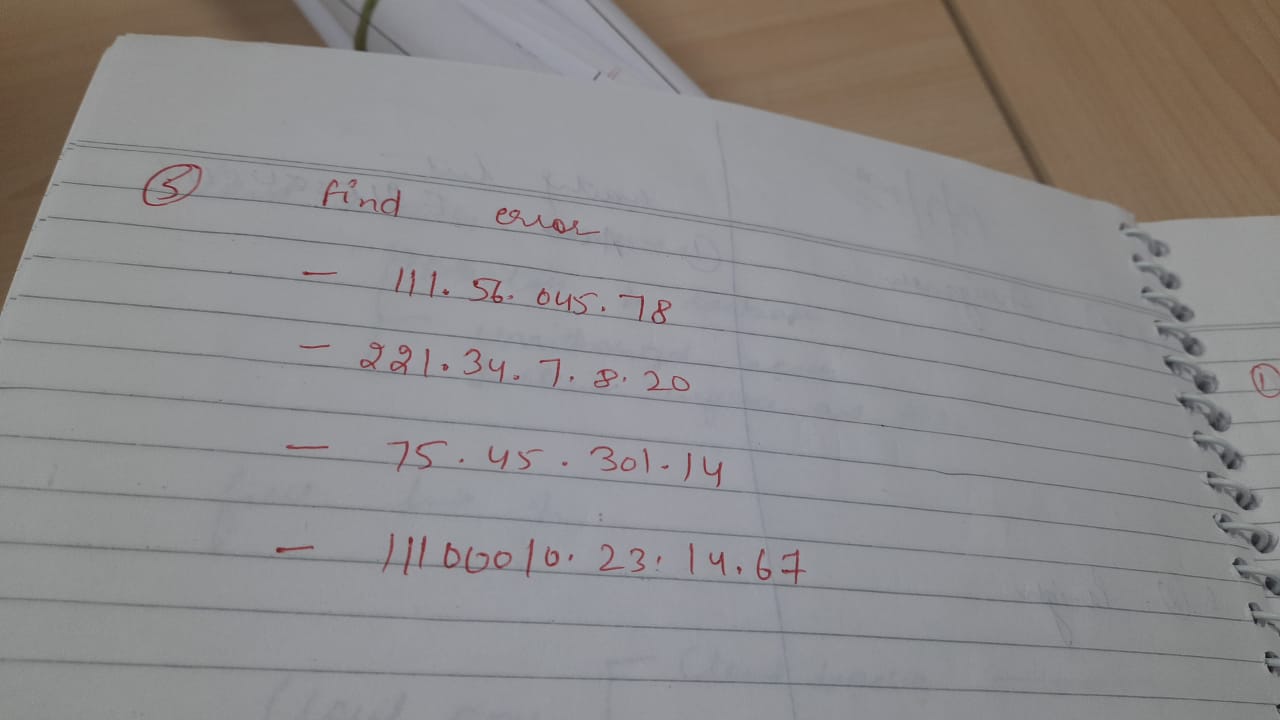 5 find error
- 111.56.045.78
- 221.34.7.8.20
- 75.45.301.14
- 11100010.23.14.67
1